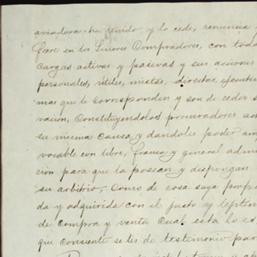 amadora ha tenido y lo cede, renuncia y
face en los Señores Compradores, con todas
cargas activas y pasivas y sus acciones
personales, útiles, mistas, directas, ejecutiv
mas que le corresponden y son de
vacion, Constituyendolos procuradores
su misma Causa y dandoles poder am
vocable con libre, franca y general admi
cion para que la posean y dispongan
su arbitrio, como de cosa suya propia
da y adquirida con el justo y lejitimo
de compra y venta cual esta la es
que consiente se les de testimonio para